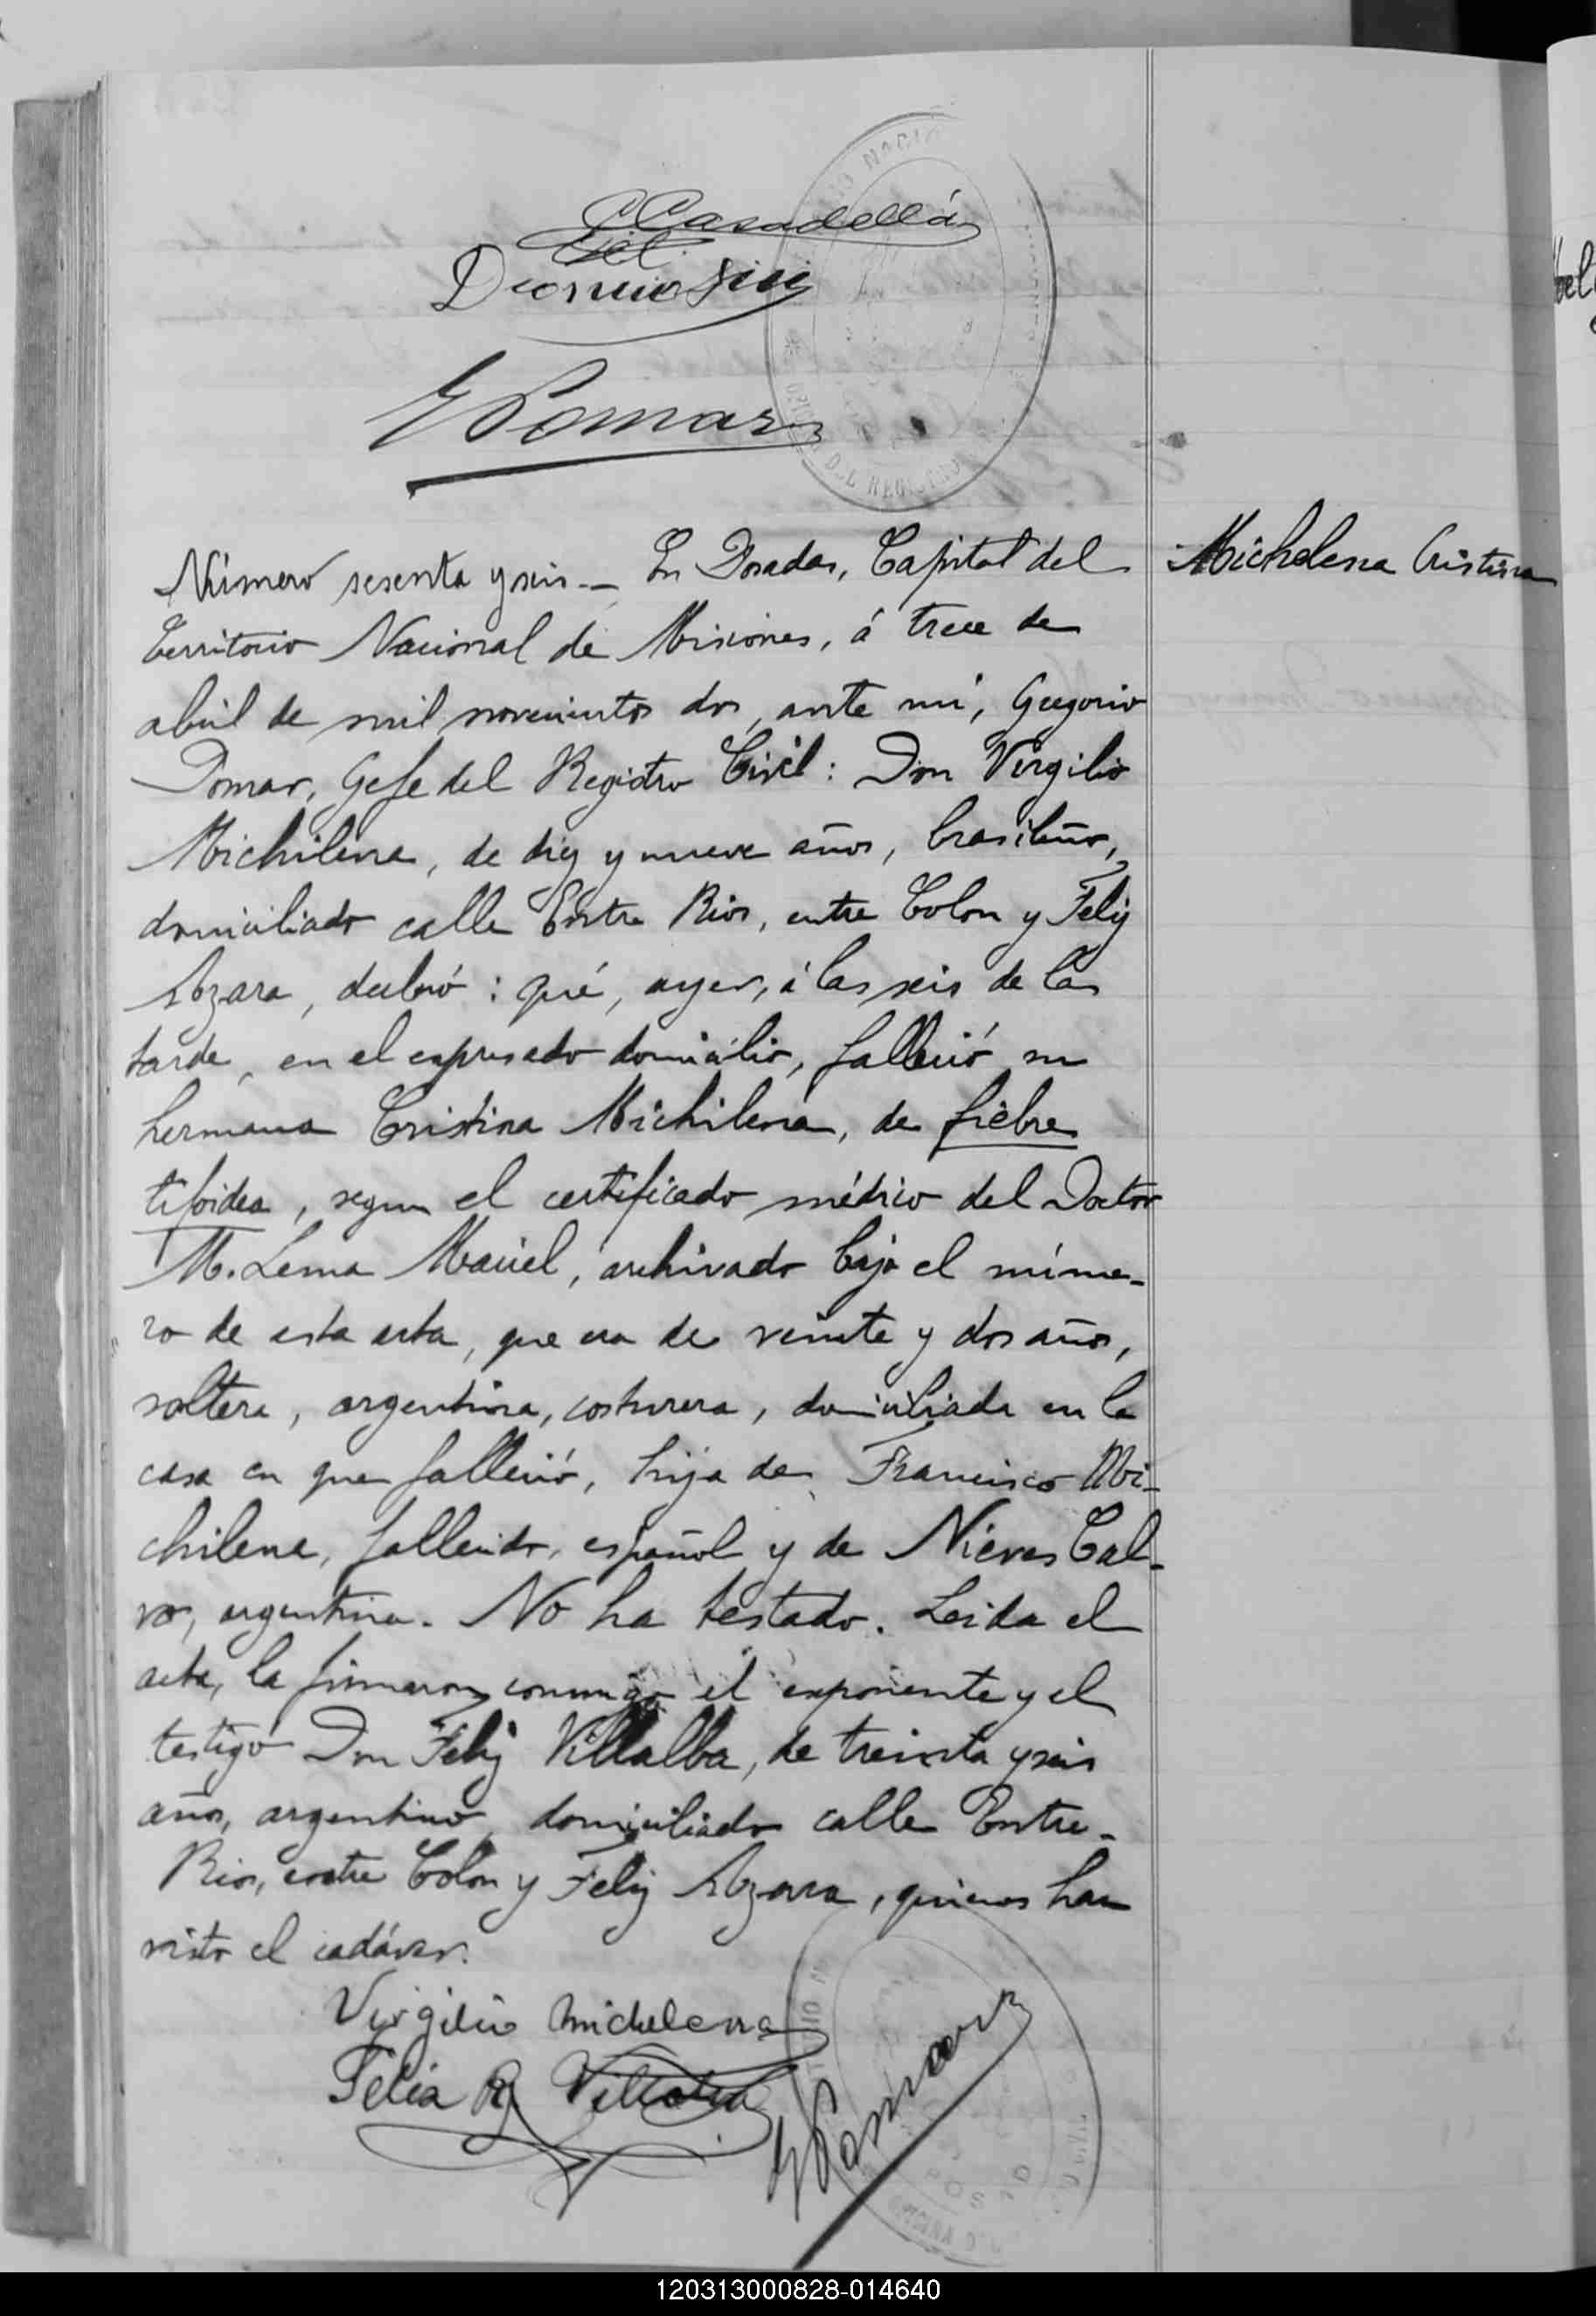 C Casadellá
Dionisio
G Pomar
Número sesenta y seis.— En Posadas, Capital del
Michelena Cristina
Territorio Nacional de Misiones, á trece de
abril de mil novecientos dos, ante mí, Gregorio
Pomar, Gefe del Registro Civil: Don Virgilio
Michilena, de diez y nueve años, brasileño,
domiciliado calle Entre Rios, entre Colon y Feliz
Azara, declaró: qué, ayer, á las seis de la
tarde, en el expresado domicilio, falleció su
hermana Cristina Michilena, de fiebre
tifoidea, segun el certificado médico del Doctor
M. Lema Maciel, archivado bajo el núme-
ro de esta acta, que era de veinte y dos años,
soltera, argentina, costurera, domiciliada en la
casa en que falleció, hija de Francisco Mi-
chilena, fallecido, español y de Nieves Cal-
vo, argentina. No ha testado. Leida el
acta, la firmaron conmigo el exponente y el
testigo Don Feliz Villalba, de treinta y seis
años, argentino, domiciliado calle Entre-
Rios, entre Colon y Feliz Azara, quienes han
visto el cadáver.
Virgilio Michelena
Felix R. Villalba
G Pomar
120313000828-014640